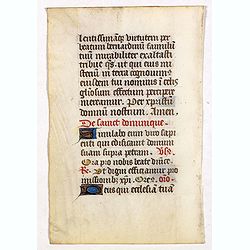 lentissimãq; virtutem per
beatum bernardinum famulū
tuū mirabiliter exaltasti
tribue qs. ut qui eius mi
steriū in terra cognouim9
eiusdem tui nominis i celis
gliosum effectum percipere
mereamur. Per xpristū
dominū nostrum. Amen.
De sainct dominique.
Similabo eum viro sapi
enti qui edificauit domum
suam supra petram. Vs.
Ora pro nobis beate dnice.
Rs. Ut digni efficiamur pro
missionib; xpi. Oreo. oro.
Deus qui ecclesiã tuã